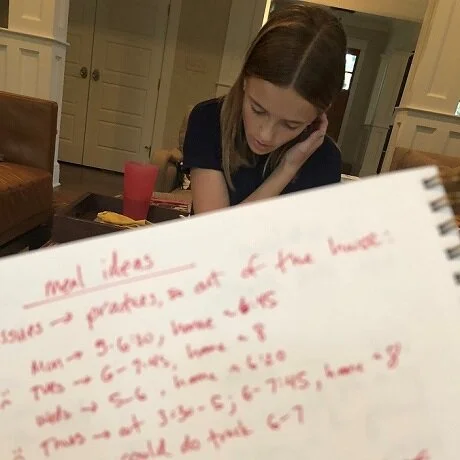 meal ideas
issues → practices, so out of the house:
Mon → 5-6:30, home ≈ 6:45
Tues → 6-7:45, home ≈ 8
Weds → 5-6, home ≈ 6:20
Thurs → art 3:30-5; 6-7:45, home ≈ 8
could do track 6-7